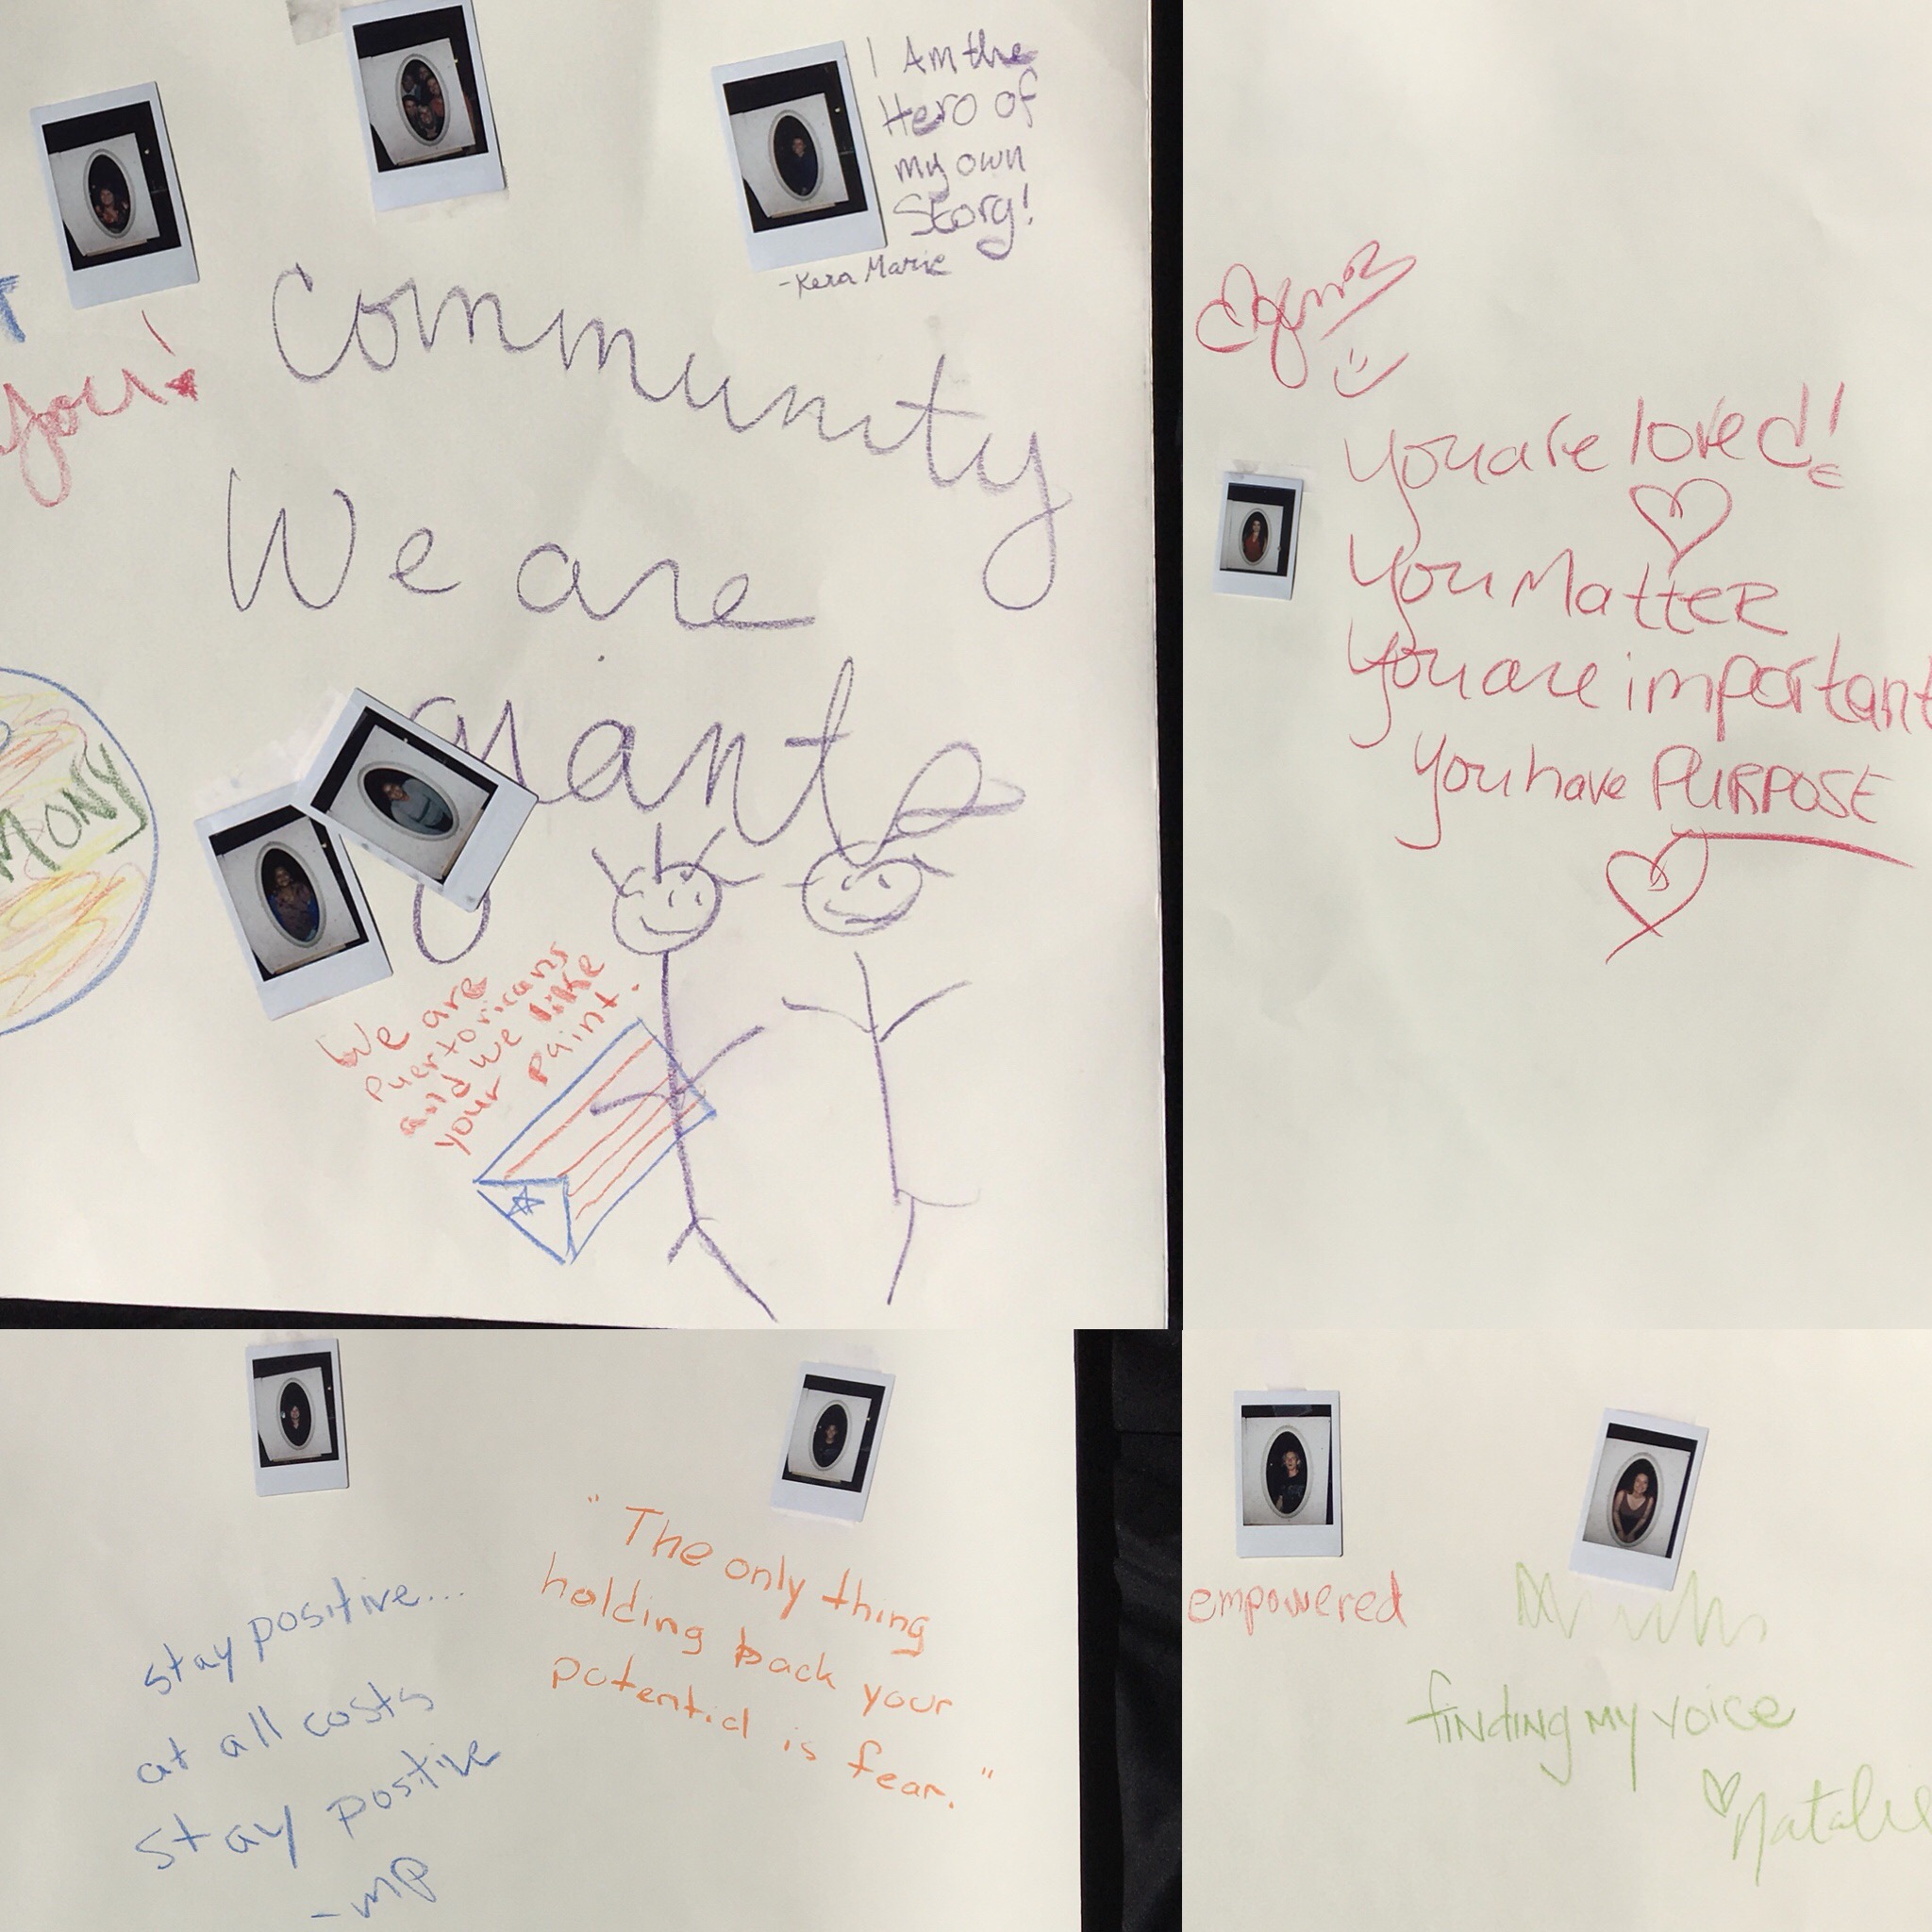 I Am the
Hero of
my own
Story!
-Kera Marie
you!
Community
We are
giants
MONY
We are
Puertoricans
and we like
your paint.
You are loved!
You MatteR
You are important
You have PURPOSE
stay positive...
at all costs
stay postive
-mp
"The only thing
holding back your
potential is fear."
empowered
finding my voice
Natalie